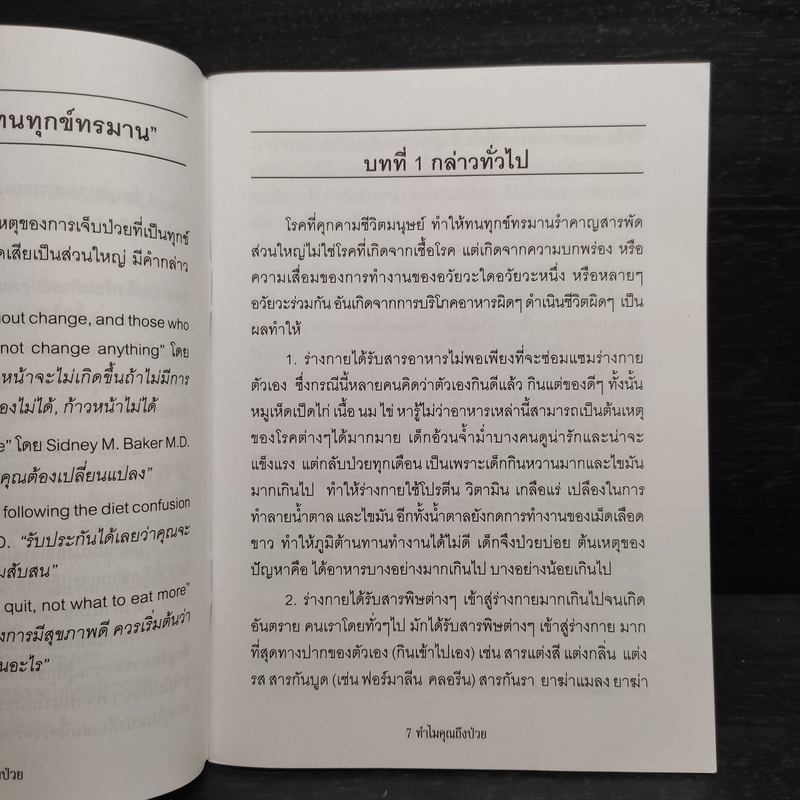 ทนทุกข์ทรมาน"
หตุของการเจ็บป่วยที่เป็นทุกข์
เสียเป็นส่วนใหญ่ มีคำกล่าว
out change, and those who
not change anything" โดย
หน้าจะไม่เกิดขึ้นถ้าไม่มีการ
องไม่ได้, ก้าวหน้าไม่ได้
e" โดย Sidney M. Baker M.D.
คุณต้องเปลี่ยนแปลง"
following the diet confusion
D. "รับประกันได้เลยว่าคุณจะ
มสับสน"
quit, not what to eat more"
งการมีสุขภาพดี ควรเริ่มต้นว่า
นอะไร"
ป่วย
บทที่ 1 กล่าวทั่วไป
โรคที่คุกคามชีวิตมนุษย์ ทำให้ทนทุกข์ทรมานรำคาญสารพัด
ส่วนใหญ่ไม่ใช่โรคที่เกิดจากเชื้อโรค แต่เกิดจากความบกพร่อง หรือ
ความเสื่อมของการทำงานของอวัยวะใดอวัยวะหนึ่ง หรือหลายๆ
อวัยวะร่วมกัน อันเกิดจากการบริโภคอาหารผิดๆ ดำเนินชีวิตผิดๆ เป็น
ผลทำให้
1. ร่างกายได้รับสารอาหารไม่พอเพียงที่จะซ่อมแซมร่างกาย
ตัวเอง ซึ่งกรณีนี้หลายคนคิดว่าตัวเองกินดีแล้ว กินแต่ของดีๆ ทั้งนั้น
หมูเห็ดเป็ดไก่ เนื้อ นม ไข่ หารู้ไม่ว่าอาหารเหล่านี้สามารถเป็นต้นเหตุ
ของโรคต่างๆได้มากมาย เด็กอ้วนจ้ำม่ำบางคนดูน่ารักและน่าจะ
แข็งแรง แต่กลับป่วยทุกเดือน เป็นเพราะเด็กกินหวานมากและไขมัน
มากเกินไป ทำให้ร่างกายใช้โปรตีน วิตามิน เกลือแร่ เปลืองในการ
ทำลายน้ำตาล และไขมัน อีกทั้งน้ำตาลยังกดการทำงานของเม็ดเลือด
ขาว ทำให้ภูมิต้านทานทำงานได้ไม่ดี เด็กจึงป่วยบ่อย ต้นเหตุของ
ปัญหาคือ ได้อาหารบางอย่างมากเกินไป บางอย่างน้อยเกินไป
2. ร่างกายได้รับสารพิษต่างๆ เข้าสู่ร่างกายมากเกินไปจนเกิด
อันตราย คนเราโดยทั่วๆไป มักได้รับสารพิษต่างๆ เข้าสู่ร่างกาย มาก
ที่สุดทางปากของตัวเอง (กินเข้าไปเอง) เช่น สารแต่งสี แต่งกลิ่น แต่ง
รส สารกันบูด (เช่น ฟอร์มาลีน คลอรีน) สารกันรา ยาฆ่าแมลง ยาฆ่า
7 ทำไมคุณถึงป่วย